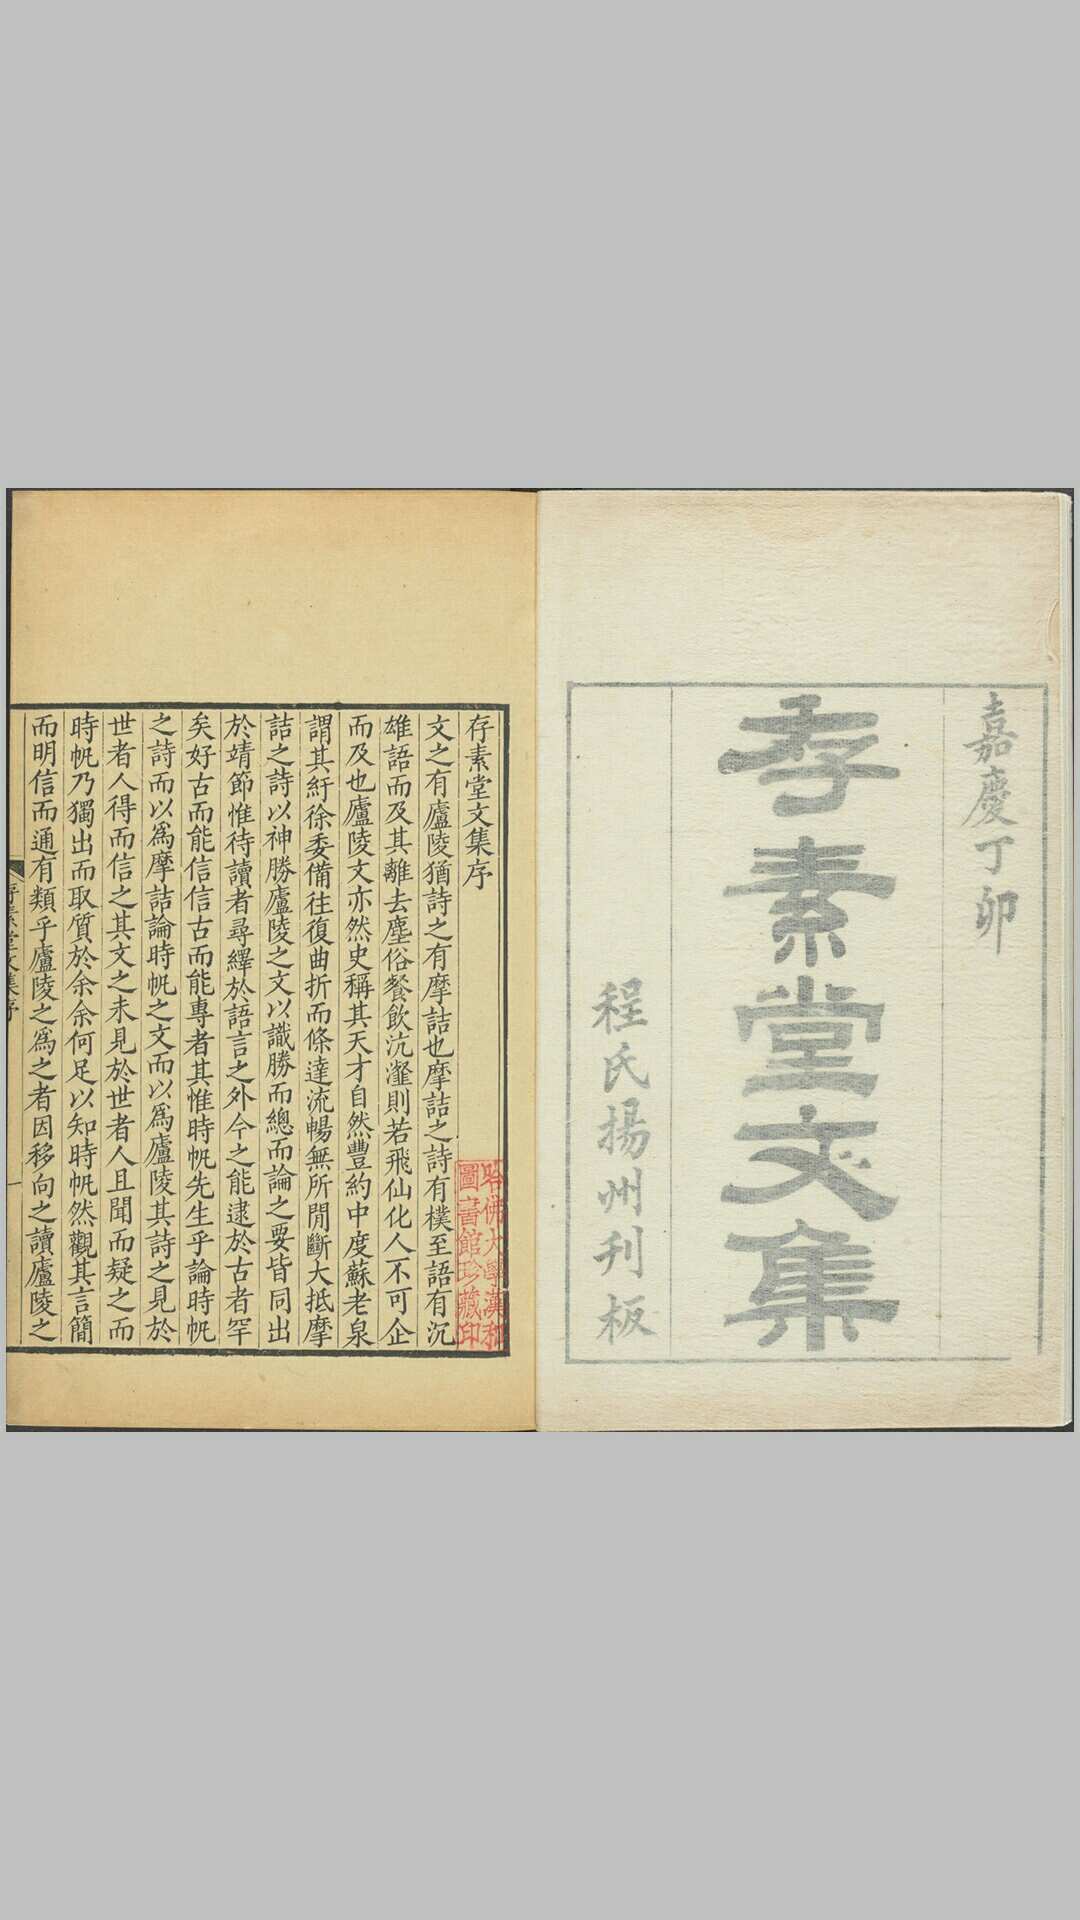 嘉慶丁卯
存素堂文集
程氏揚州刊板
存素堂文集序
文之有廬陵猶詩之有摩詰也摩詰之詩有樸至語有沉
雄語而及其離去塵俗餐飲沆瀣則若飛仙化人不可企
而及也廬陵文亦然史稱其天才自然豐約中度蘇老泉
謂其紆徐委備往復曲折而條達流暢無所間斷大抵摩
詰之詩以神勝廬陵之文以識勝而總而論之要皆同出
於靖節惟待讀者尋繹於語言之外今之能逮於古者罕
矣好古而能信信古而能專者其惟時帆先生乎論時帆
之詩而以爲摩詰論時帆之文而以爲廬陵其詩之見於
世者人得而信之其文之未見於世者人且聞而疑之而
時帆乃獨出而取質於余余何足以知時帆然觀其言簡
而明信而通有類乎廬陵之爲之者因移向之讀廬陵之
存素堂文集序
一
哈佛大學漢和
圖書館珍藏印